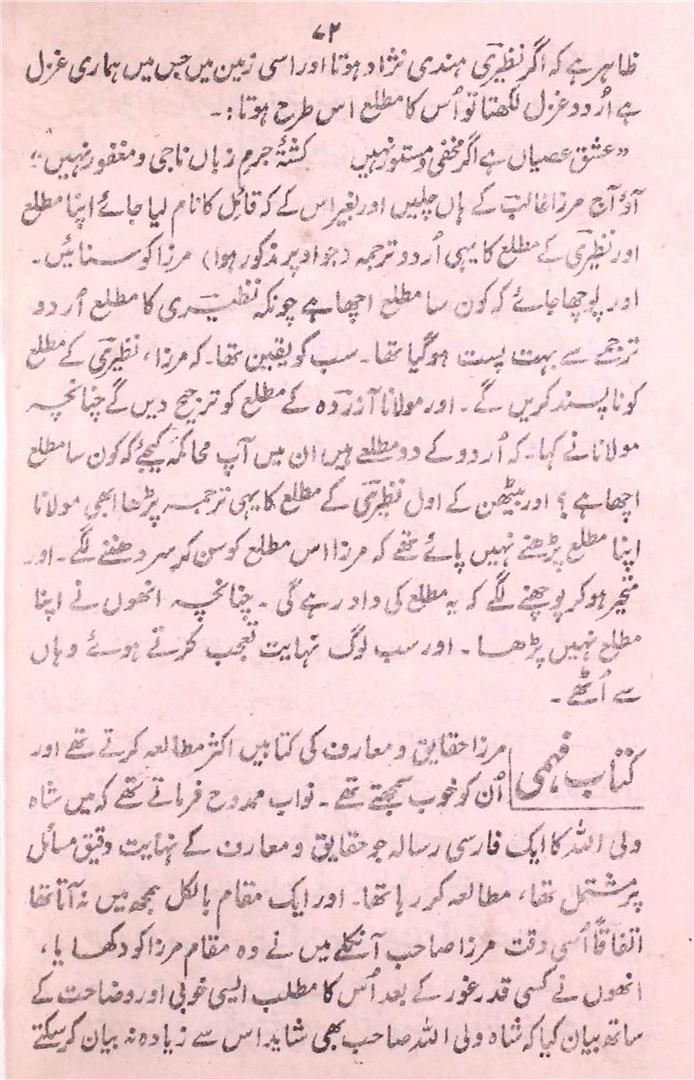 ۷۲
ظاہر ہے کہ اگر نظیریؔ ہندی نژاد ہوتا اور اسی زمین میں جس میں ہماری غزل
ہے اُردو غزل لکھتا تو اُس کا مطلع اس طرح ہوتا :۔
”عشق عصیاں ہے اگر مخفی و مستور نہیں کشتۂ جرمِ زباں ناجی و مغفور نہیں“
آؤ آج مرزا غالبؔ کے ہاں چلیں اور بغیر اس کے کہ قائل کا نام لیا جائے اپنا مطلع
اور نظیریؔ کے مطلع کا یہی اُردو ترجمہ (جو اوپر مذکور ہوا) مرزا کو سنائیں۔
اور پوچھا جائے کہ کون سا مطلع اچھا ہے چونکہ نظیریؔ کا مطلع اُردو
ترجمے سے بہت پست ہوگیا تھا۔ سب کو یقین تھا۔ کہ مرزا، نظیریؔ کے مطلع
کو ناپسند کریں گے۔ اور مولانا آزردہؔ کے مطلع کو ترجیح دیں گے چنانچہ
مولانا نے کہا۔ کہ اُردو کے دو مطلعے ہیں ان میں آپ محاکمہ کیجئے کہ کون سا مطلع
اچھا ہے؟ اور بیٹھن کے اول نظیریؔ کے مطلع کا یہی ترجمہ پڑھا ابھی مولانا
اپنا مطلع پڑھنے نہیں پائے تھے کہ مرزا اس مطلع کو سن کر سر دھننے لگے۔ اور
متحیر ہوکر پوچھنے لگے کہ یہ مطلع کی داد رہے گی۔ چنانچہ انھوں نے اپنا
مطلع نہیں پڑھا۔ اور سب لوگ نہایت تعجب کرتے ہوئے وہاں
سے اُٹھے۔
کتاب فہمی مرزا حقایق و معارف کی کتابیں اکثر مطالعہ کرتے تھے اور
اُن کو خوب سمجھتے تھے۔ نواب ممدوح فرماتے تھے کہ میں شاہ
ولی اللہ کا ایک فارسی رسالہ جو حقایق و معارف کے نہایت دقیق مسائل
پر مشتمل تھا، مطالعہ کر رہا تھا۔ اور ایک مقام بالکل سمجھ میں نہ آتا تھا
اتفاقاً اُسی وقت مرزا صاحب آنکلے میں نے وہ مقام مرزا کو دکھایا،
انھوں نے کسی قدر غور کے بعد اُس کا مطلب ایسی خوبی اور وضاحت کے
ساتھ بیان کیا کہ شاہ ولی اللہ صاحب بھی شاید اس سے زیادہ نہ بیان کرسکتے